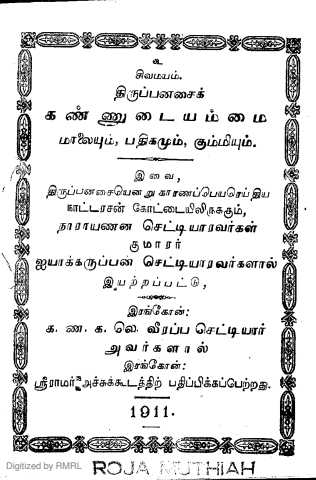 உ
சிவமயம்.
திருப்பனசைக்
கண்ணுடையம்மை
மாலையும், பதிகமும், கும்மியும்.
இவை,
திருப்பனசையென்று காரணப்பெயரெய்திய
காட்டரசன் கோட்டையிலிருக்கும்,
நாராயணன் செட்டியாரவர்கள்
குமாரர்
ஐயாக்கருப்பன் செட்டியாரவர்களால்
இயற்றப்பட்டு,
இரங்கோன்:
க. ண. க. லெ. வீரப்ப செட்டியார்
அவர்களால்
இரங்கோன்:
ஸ்ரீராமர் அச்சுக்கூடத்திற் பதிப்பிக்கப்பெற்றது.
1911.
Digitized by RMRL
ROJA MUTHIAH